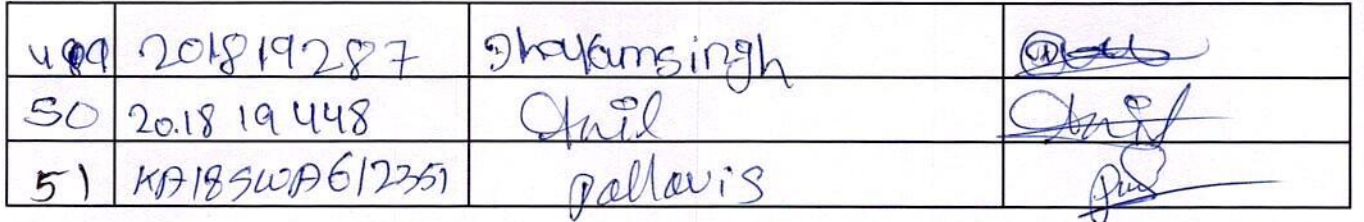 49 201819287 Dhayamsingh
50 20.18 19 448 Anil Anil
51 KA18SWA612351 pallavis